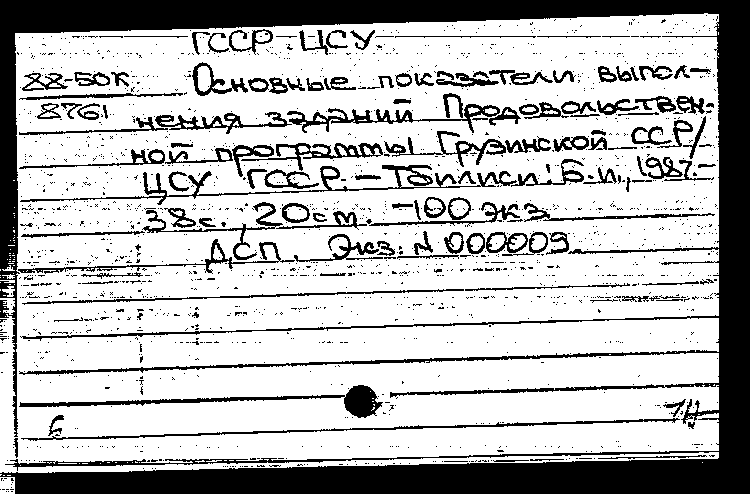 ГССР. ЦСУ.
88-50К Основные показатели выпол-
8761 нения заданий Продовольствен-
ной программы Грузинской ССР/
ЦСУ ГССР. – Тбилиси: Б.и., 1987. –
38с., 20см. – 100 экз.
ДСП. Экз. N 000009.
6